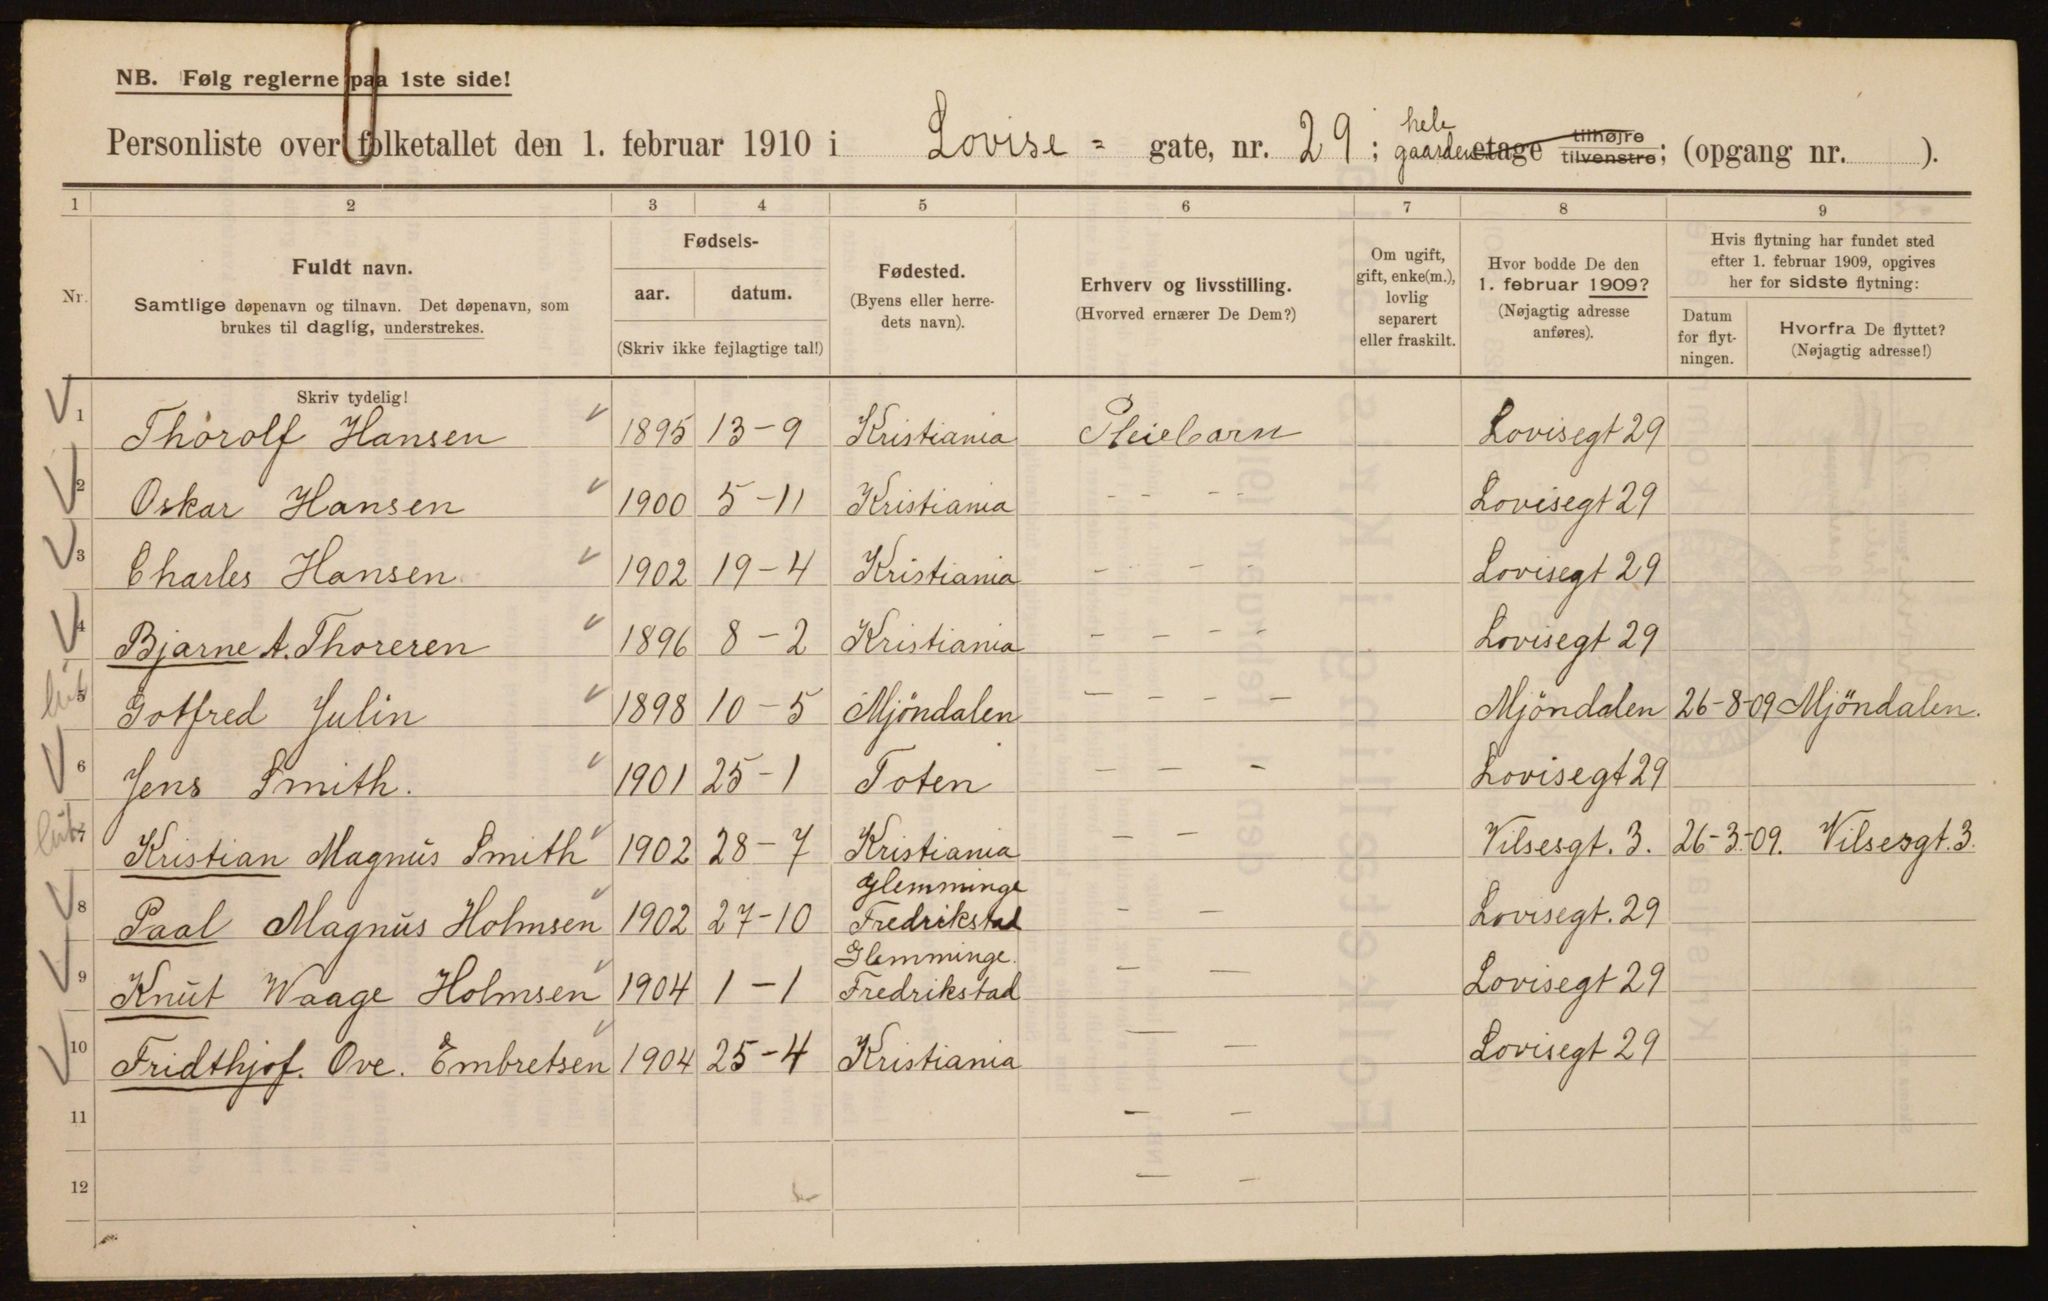 NB. Følg reglerne paa 1ste side!
Personliste over folketallet den 1. februar 1910 i Lovise = gate, nr. 29; hele gaarden etage tilhøjre tilvenstre; (opgang nr. ).
1 2 3 4 5 6 7 8 9
Nr.
Fuldt navn.
Samtlige døpenavn og tilnavn. Det døpenavn, som
brukes til daglig, understrekes.
Fødsels-
aar. datum.
(Skriv ikke fejlagtige tal!)
Fødested.
(Byens eller herre-
dets navn).
Erhverv og livsstilling.
(Hvorved ernærer De Dem?)
Om ugift,
gift, enke(m.),
lovlig
separert
eller fraskilt.
Hvor bodde De den
1. februar 1909?
(Nøjagtig adresse
anføres).
Hvis flytning har fundet sted
efter 1. februar 1909, opgives
her for sidste flytning:
Datum
for flyt-
ningen.
Hvorfra De flyttet?
(Nøjagtig adresse!)
Skriv tydelig!
1 Thorolf Hansen 1895 13-9 Kristiania Pleiebarn Lovisegt 29
2 Oskar Hansen 1900 5-11 Kristiania - - - - Lovisegt 29
3 Charles Hansen 1902 19-4 Kristiania - - - - Lovisegt 29
4 Bjarne A. Thoreren 1896 8-2 Kristiania - - - - Lovisegt 29
5 Gotfred Julin 1898 10-5 Mjöndalen - - - - Mjöndalen 26-8-09 Mjöndalen.
6 Jens Smith. 1901 25-1 Toten - - - Lovisegt 29
7 Kristian Magnus Smith 1902 28-7 Kristiania - - Vilsesgt. 3. 26-3-09. Vilsesgt. 3.
Glemminge
8 Paal Magnus Holmsen 1902 27-10 Fredrikstad - - Lovisegt. 29
Glemminge.
9 Knut Waage Holmsen 1904 1-1 Fredrikstad - - Lovisegt 29
10 Fridthjof. Ove. Embretsen 1904 25-4 Kristiania - - Lovisegt 29
11 - -
12 - -